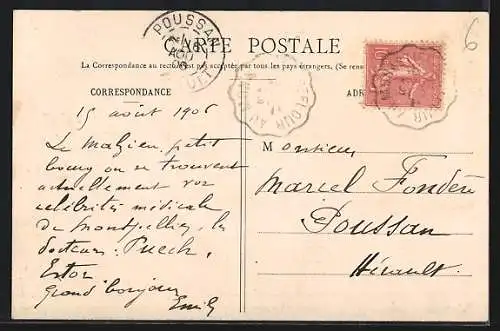 6
POUSSAN
16
AOU
06
CARTE POSTALE
La Correspondance au recto n'est pas acceptée par tous les pays étrangers, (Se rense
CORRESPONDANCE
ADR
FLOUR AU
15 août 1906
Le Malzieu, petit
bourg ou se trouvent
actuellement vos
célébrités médicale
de Montpellier, les
docteurs Puech,
Estor
Grand bonjour
Emily
Monsieur
Marcel Fondère
Poussan
Hérault